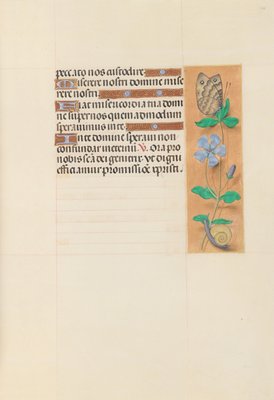 peccato nos custodire
Miserere nostri domine mise
rere nostri
Fiat misericordia tua domi
ne super nos quemadmodum
speravimus in te
In te domine speravi non
confundar in eternū V. Ora pro
nobis scā dei genitrix ut digni
efficiamur promissiōe xpristi.